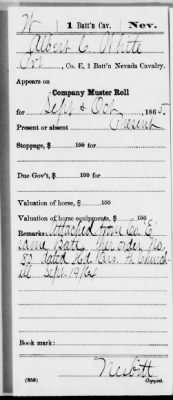 W 1 Batt'n Cav. Nev.
Albert C. White
Pvt, Co. E, 1 Batt'n Nevada Cavalry.
Appears on
Company Muster Roll
for Sept & Oct, 1865.
Present or absent Present
Stoppage, $ 100 for
Due Gov't, $ 100 for
Valuation of horse, $ 100
Valuation of horse equipments, $ 100
Remarks: Attached from Co. "E"
same Batt. Per order No.
80 dated Hd Qrs. Ft. Church-
ill Sept. 19/64
Book mark:
Nesbitt
(358) Copyist.